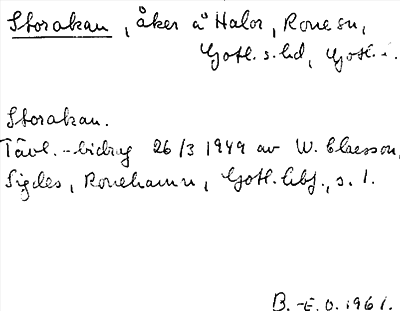 Storakan, åker å Halor, Rone sn,
Gotl. s. hd, Gotl. l.
Storakan.
Tävl.-bidrag 26/3 1949 av W. Claesson,
Sigdes, Ronehamn, Gotl. lbf., s. 1.
B.-E. O. 1961.